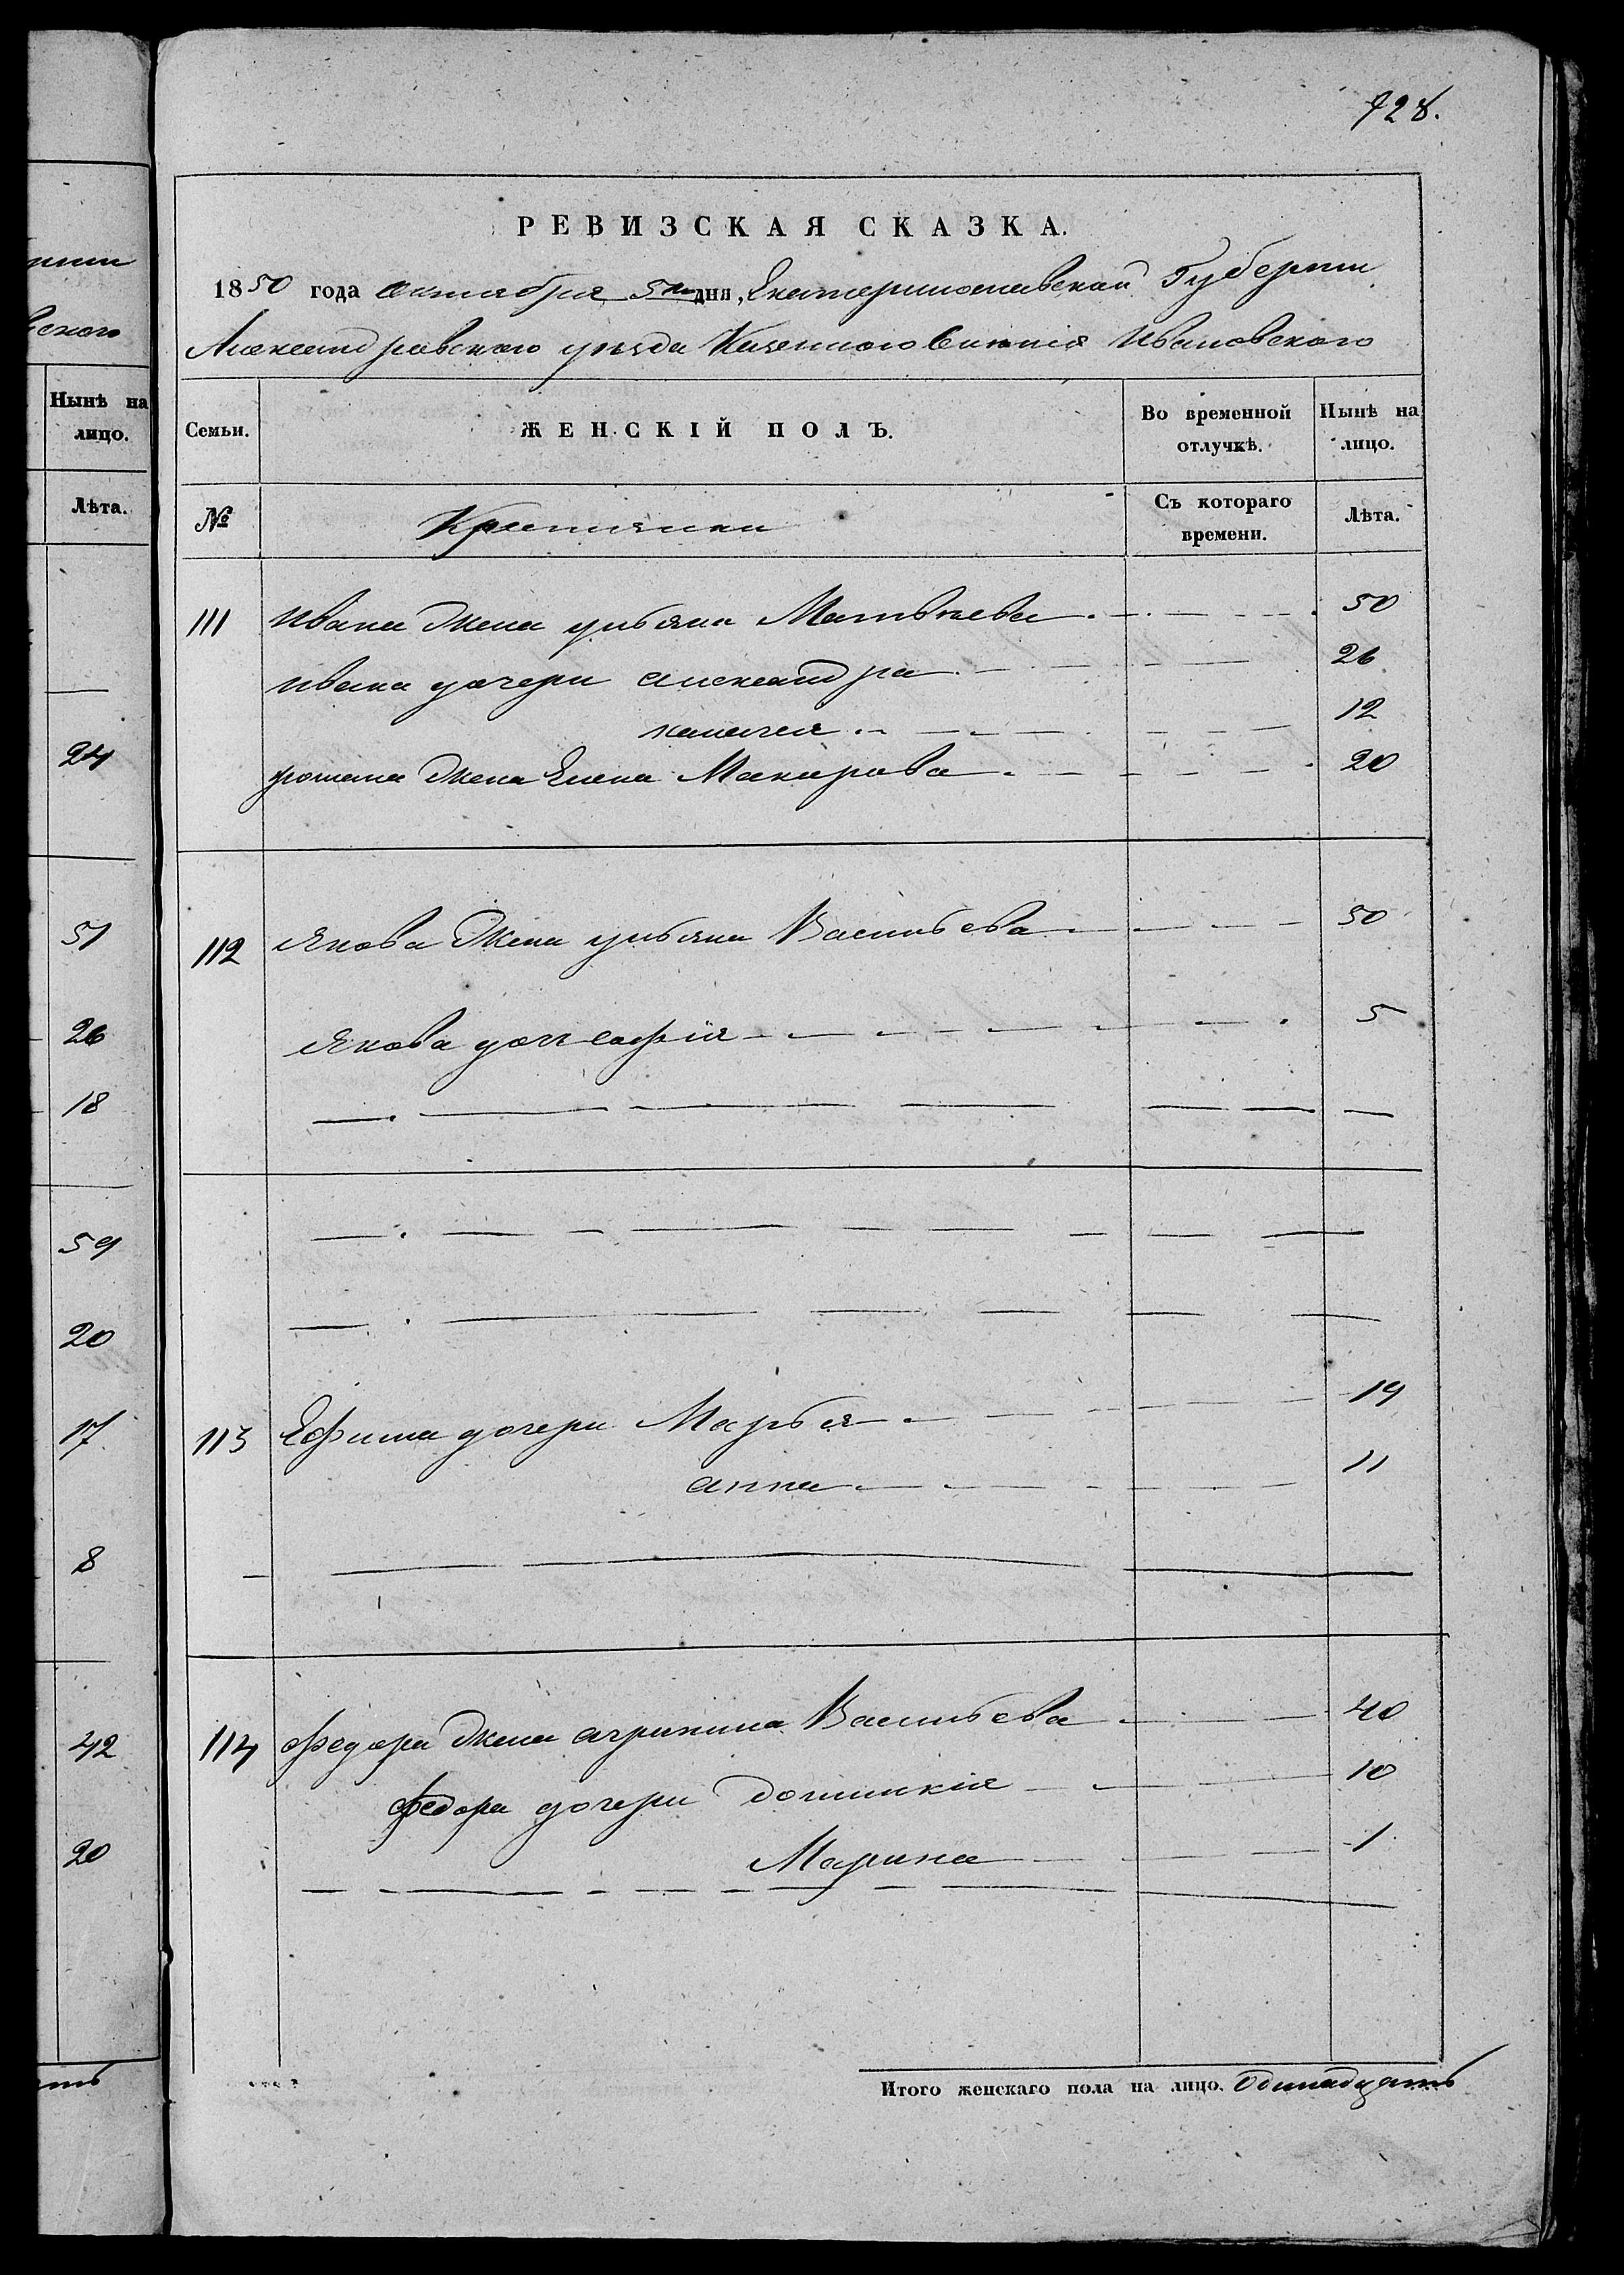 728.
рніи
вского
Нынѣ на
лицо.
Лѣта.
24
51
26
18
59
20
17
8
42
20
ать
РЕВИЗСКАЯ СКАЗКА.
1850 года октября 5го дня, Екатеринославской Губерніи
Александровского уѣзда Казенного Селенія Ивановского
Семьи. ЖЕНСКІЙ ПОЛЪ. Во временной отлучкѣ. Нынѣ на лицо.
№ Крестьянки Съ котораго времени. Лѣта.
111 Ивана жена ульяна Матвѣева 50
Ивана дочери александра 26
12
романа жена Елена Макарова 20
112 Якова жена ульяна Васильева 50
Якова дочь софія 5
113 Ефима дочери Марья 19
анна 11
114 Федора жена агрипина Васильева 40
Федора дочери домникія 10
Марина 1
Итого женскаго пола на лицо. Одинадцать